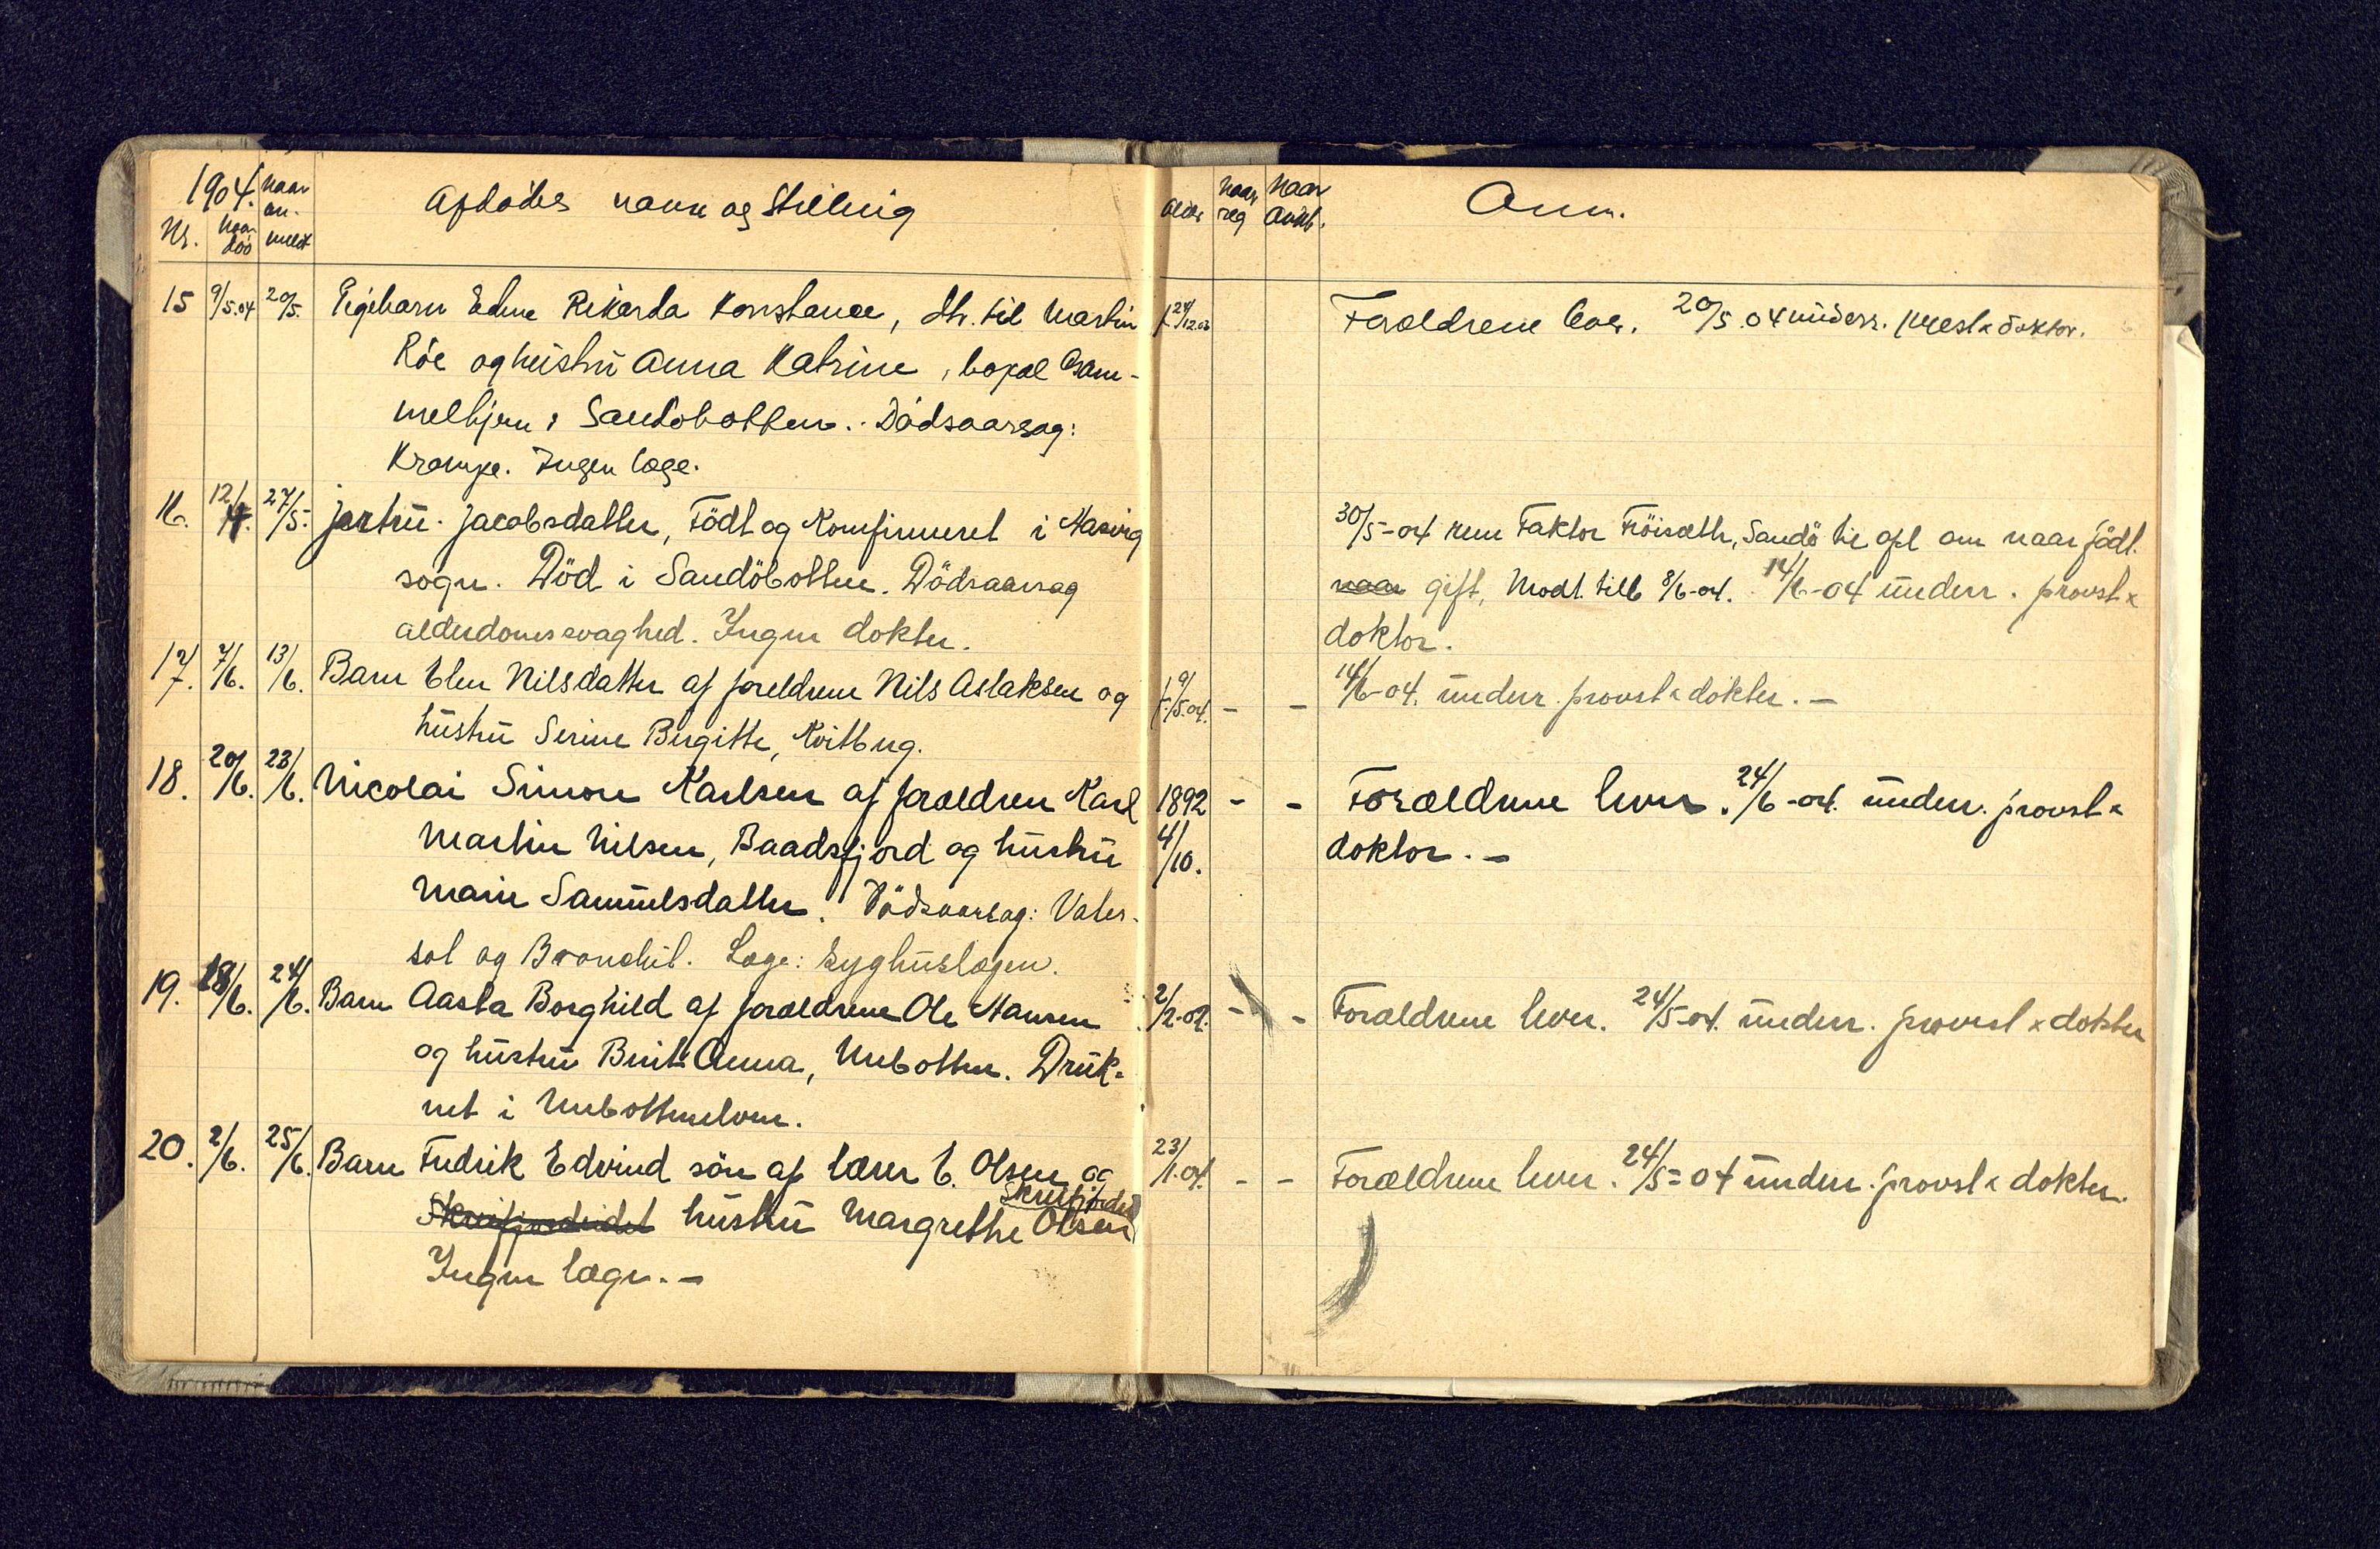 1904. Naar an- meldt Afdödes navn og Stilling
Nr. Naar död
15 9/5.04 20/5. Pigebarn Edne Rikarda Konstance, dtr. til Martin
Röe og hustru Anna Katrine, bopæl Gam-
melhjem i Sandöbotten. Dödsaarsag:
Krampe. Ingen læge.
16. 12/4. 27/5. Jertru Jacobsdatter, Födt og Konfirmeret i Hasvig
sogn. Död i Sandöbotten. Dödsaarsag
alderdomssvaghed. Ingen dokter.
17. 7/6. 13/6. Barn Elen Nilsdatter af foreldrene Nils Aslaksen og
hustru Serine Birgitte, Kvitbng.
18. 20/6. 23/6. Nicolai Simon Karlsen af foreldren Karl
Martin Nilsen, Baadsfjord og hustru
Marie Samuelsdatter. Dödsaarsag: Vater-
sot og Bronchit. Læge: Syghuslægen.
19. 18/6. 24/6. Barn Aasta Borghild af foreldrene Ole Hansen
og hustru Berit Anna, Uebotten. Druk-
net i Uebottenelven.
20. 2/6. 25/6. Barn Fredrik Edvind sön af lærer E. Olsen og
Skreifjordeidet
Skreifjordeidet hustru Margrethe Olsen
Ingen læge. –
alder Naar reg Naar Avikl. Anm.
f 24/12.03 Foreldrene lever. 20/5.04 underr. prest & doktor.
30/5-04 rem Faktor Fröisæth, Sandö til opl om naar födt.
naar gift, Modt. tilb 8/6-04. 14/6-04 underr. provst &
doktor.
f. 9/5.04. – – 14/6-04. underr. provst & dokter. –
1892 – – Forældrene lever. 24/6-04. underr. provst &
4/10. doktor. –
2/2-02. – – Forældrene lever. 24/5-04. underr. provst & dokter
23/1.04. – – Forældrene lever. 24/5-04 underr. provst & dokter.